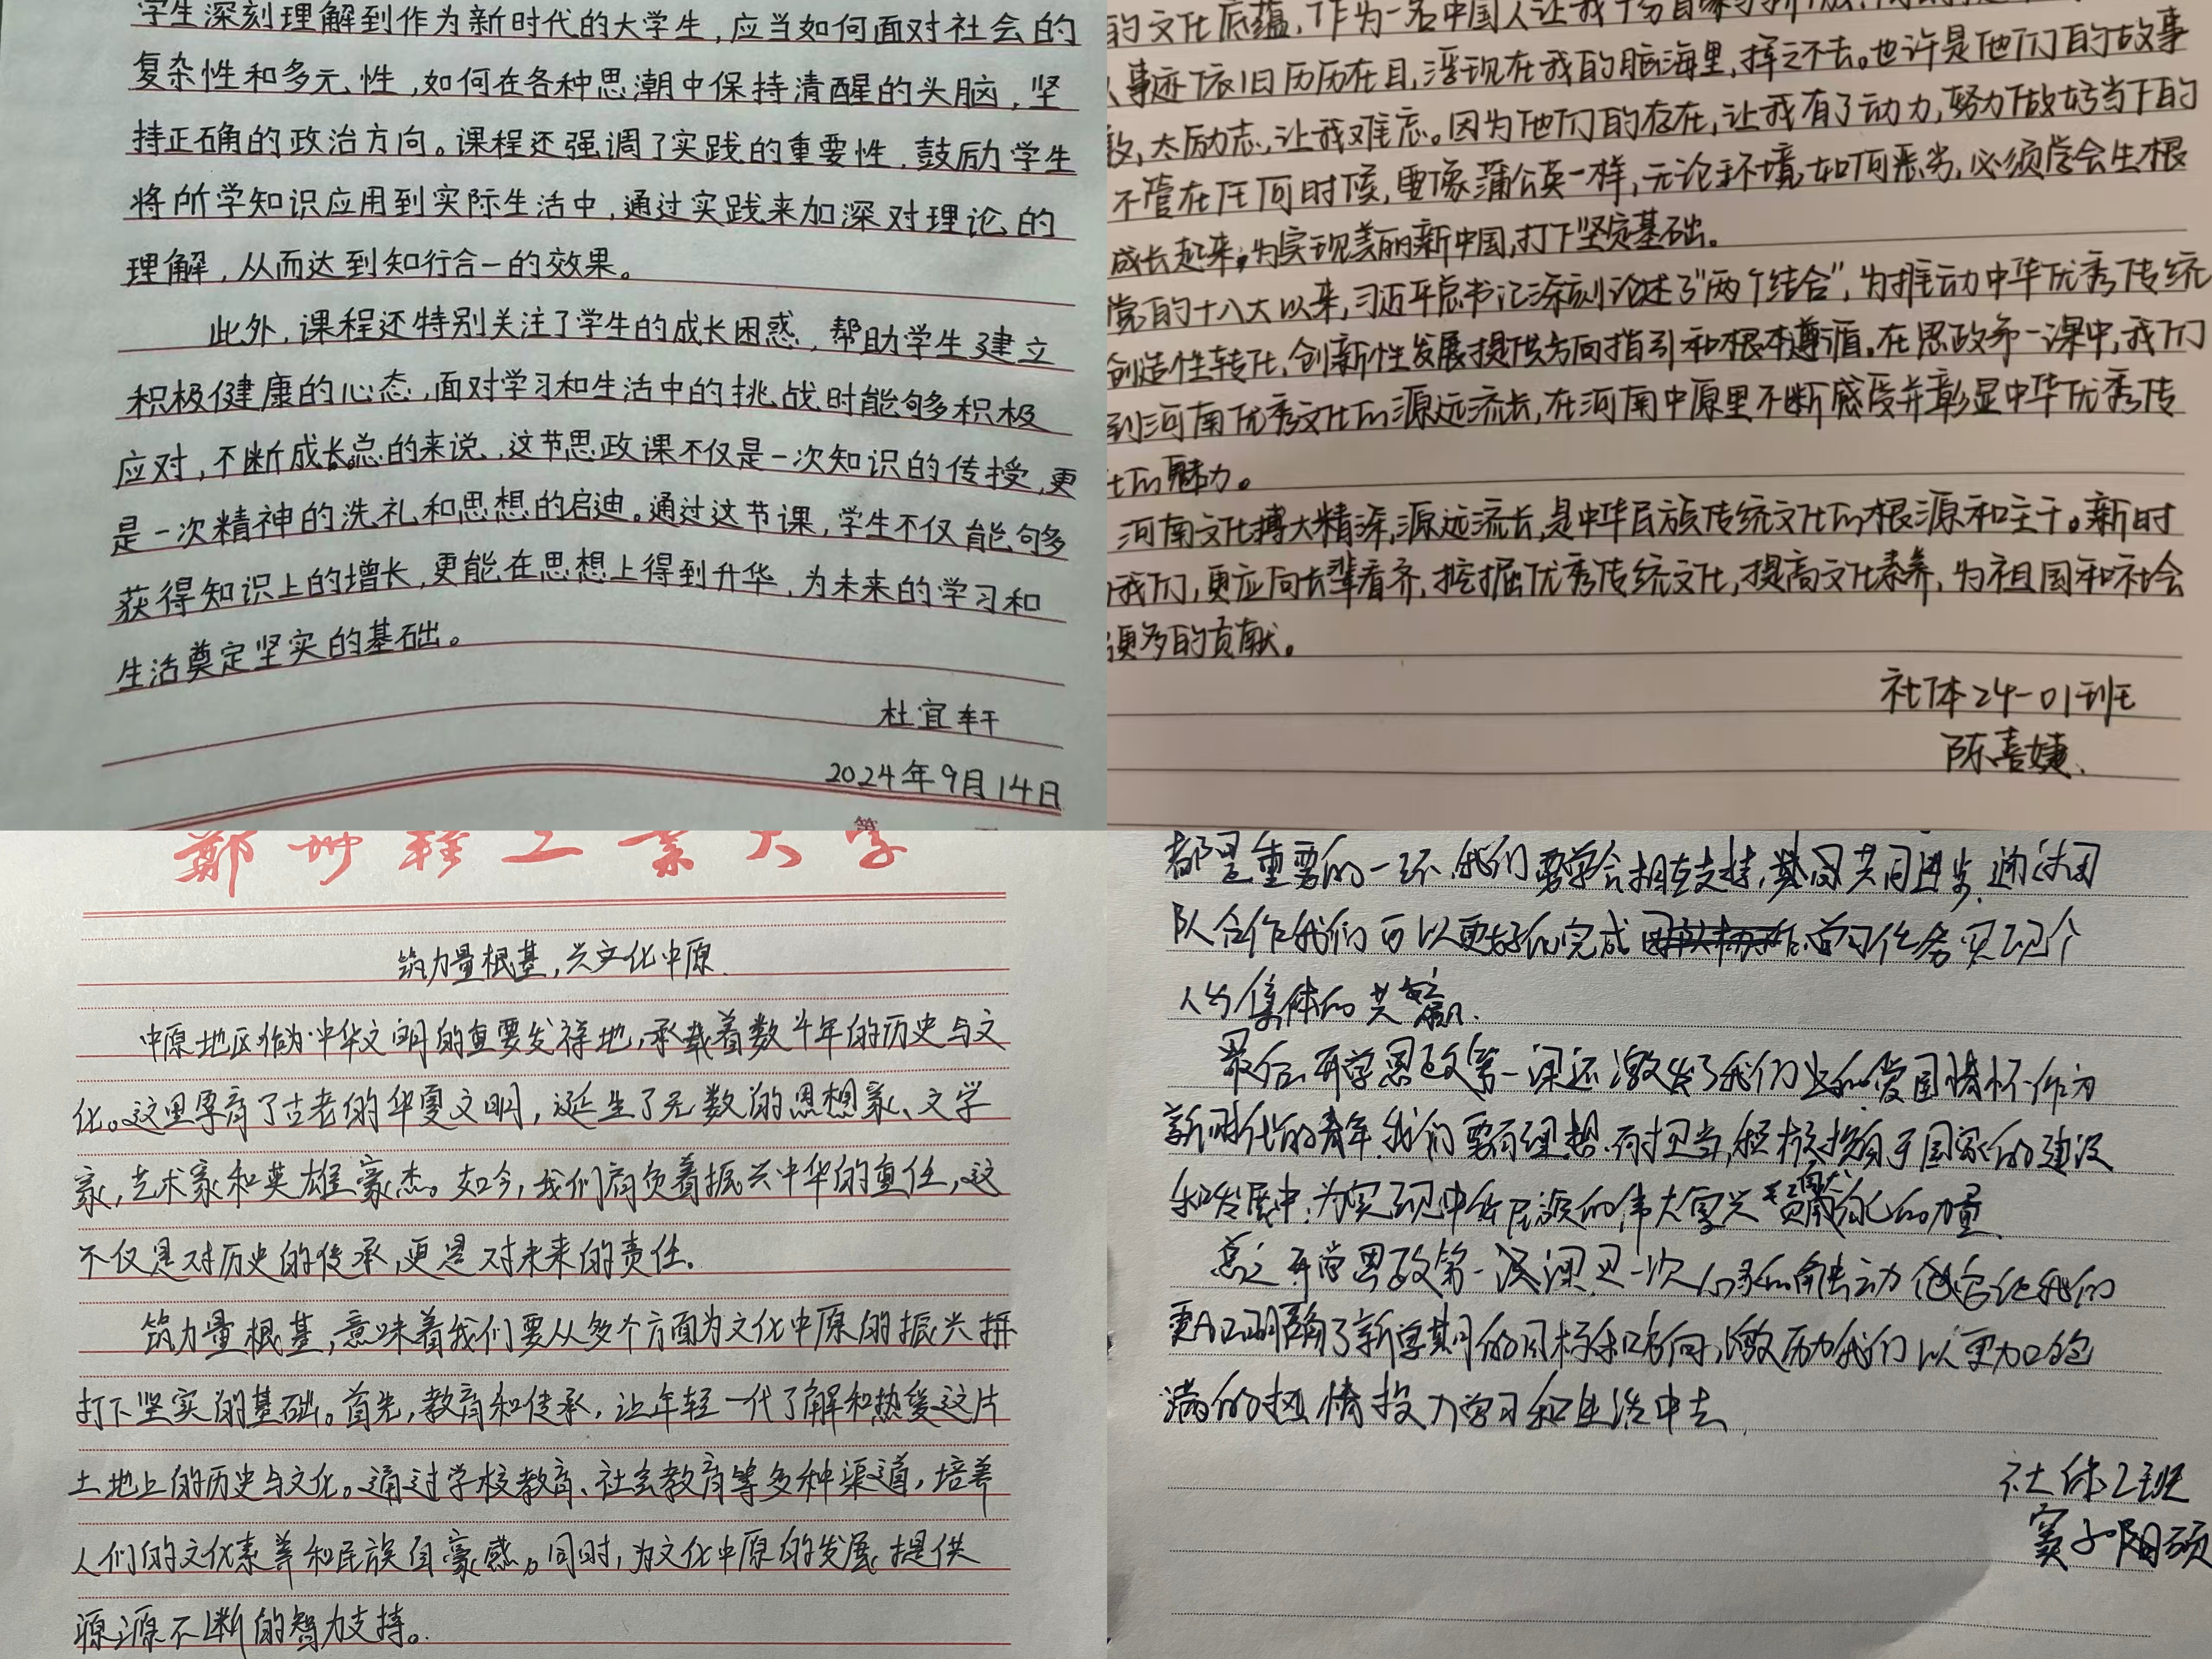 学生深刻理解到作为新时代的大学生，应当如何面对社会的
复杂性和多元性，如何在各种思潮中保持清醒的头脑，坚
持正确的政治方向。课程还强调了实践的重要性，鼓励学生
将所学知识应用到实际生活中，通过实践来加深对理论的
理解，从而达到知行合一的效果。
此外，课程还特别关注了学生的成长困惑，帮助学生建立
积极健康的心态，面对学习和生活中的挑战时能够多积极
应对，不断成长。总的来说，这节思政课不仅是一次知识的传授，更
是一次精神的洗礼和思想的启迪。通过这节课，学生不仅能够多
获得知识上的增长，更能在思想上得到升华，为未来的学习和
生活奠定坚实的基础。
杜宜轩
2024年9月14日
第
的文化底蕴，作为一名中国人让我十分自豪与
事迹依旧历历在目，浮现在我的脑海里，挥之不去。也许是他们的故事
太励志，让我难忘。因为他们的存在，让我有了动力，努力做好当下的
不管在任何时候，要像蒲公英一样，无论环境如何恶劣，必须学会生根
成长起来，为实现美丽新中国，打下坚实基础。
党的十八大以来，习近平总书记深刻论述了“两个结合”，为推动中华优秀传统
创造性转化，创新性发展提供方向指引和根本遵循。在思政第一课中，我们
到河南优秀文化的源远流长，在河南中原里不断感受并彰显中华优秀传
化的魅力。
河南文化搏大精深，源远流长，是中华民族传统文化的根源和主干。新时
我们，更应向长辈看齐，挖掘优秀传统文化，提高文化素养，为祖国和社会
更多的贡献。
社体24-01班
陈喜婕.
郑州轻工业大学
筑力量根基，兴文化中原.
中原地区作为中华文明的重要发祥地，承载着数千年的历史与文
化。这里孕育了古老的华夏文明，诞生了无数的思想家、文学
家，艺术家和英雄豪杰。如今，我们肩负着振兴中华的重任，这
不仅是对历史的传承，更是对未来的责任。
筑力量根基，意味着我们要从多个方面为文化中原的振兴拼
打下坚实的基础。首先，教育和传承，让年轻一代了解和热爱这片
土地上的历史与文化。通过学校教育、社会教育等多种渠道，培养
人们的文化素养和民族自豪感。同时，为文化中原的发展提供
源源不断的智力支持。
都是重要的一环，我们要学会相互支持，共同进步，通过团
队合作我们可以更好的完成学习任务实现个
人与集体的共赢.
最后开学思政第一课还激发了我们的爱国情怀作为
新时代的青年，我们要有理想.有担当，积极投身于国家的建设
和发展中，为实现中华民族的伟大复兴贡献自己的力量.
总之开学思政第一课是一次
更加明确了新学期的目标和方向，激励我们以更加饱
满的热情投入学习和生活中去.
社体2班
窦子阳硕